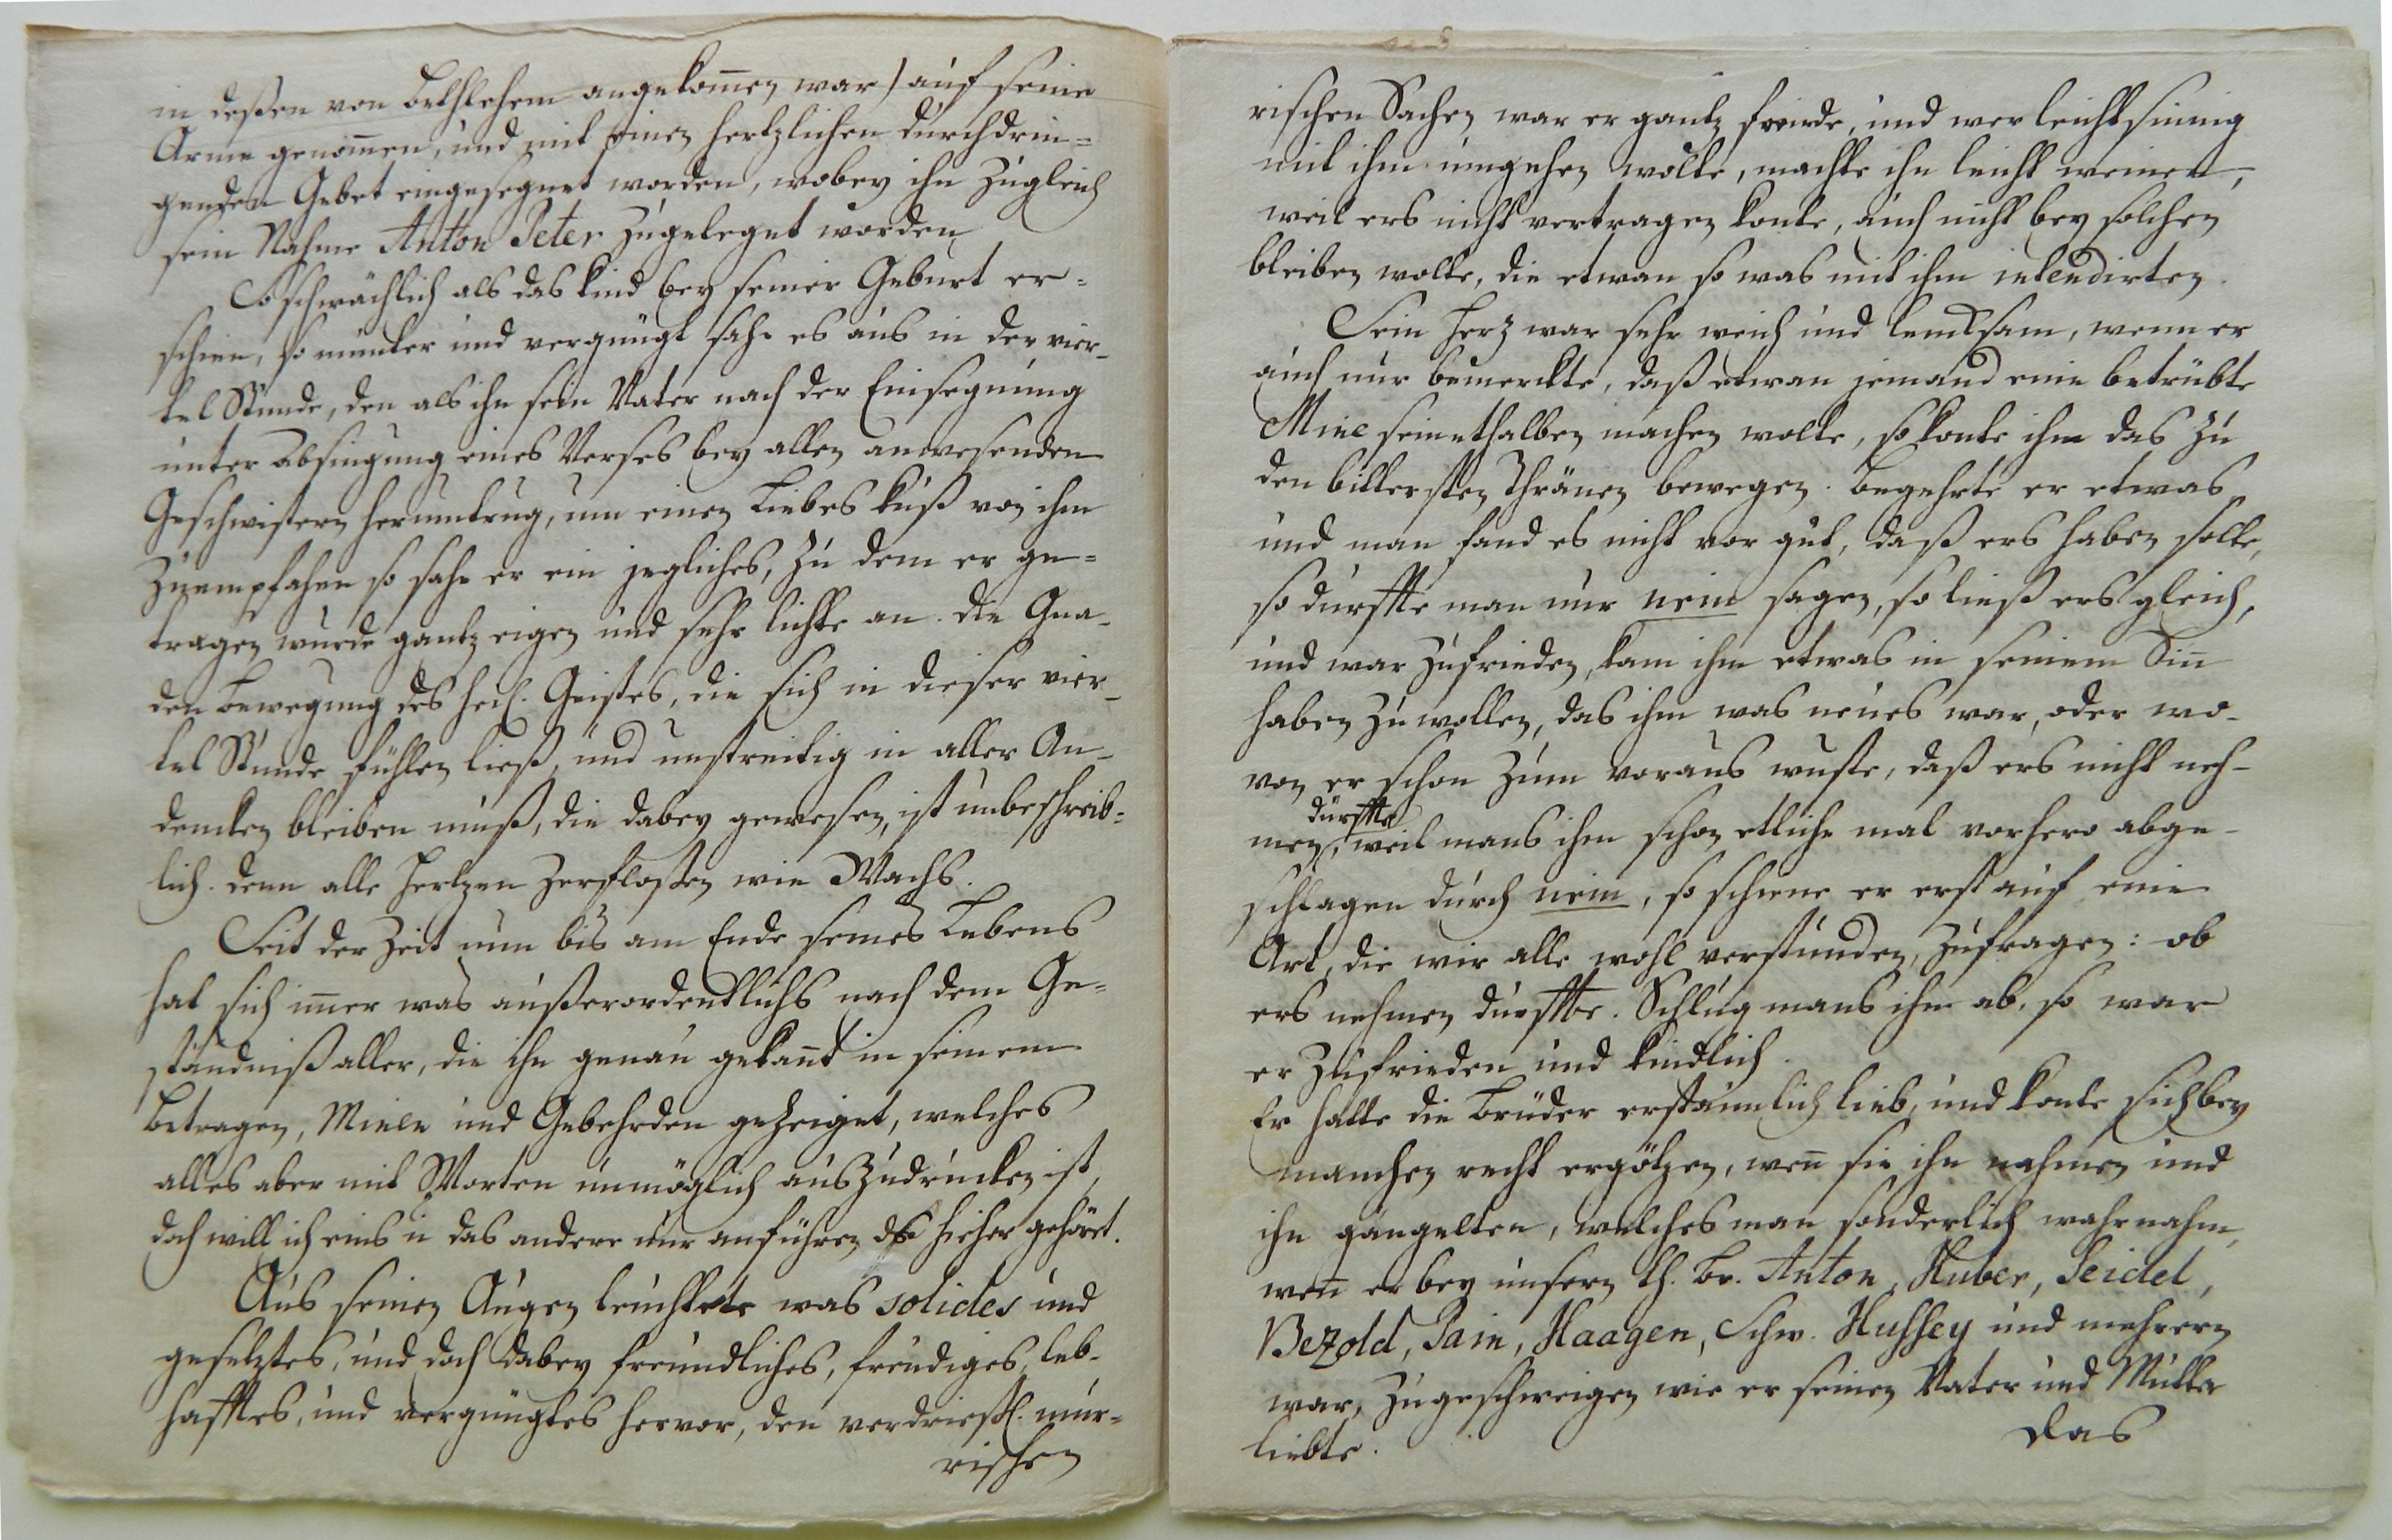 in deßen von Bethlehem angekom̄en war) auf seine
Arme genom̄en, und mit einen hertzlichen durchdrin=
genden Gebet eingesegnet worden, wobey ihn zugleich
sein Nahme Anton Peter zugeleget worden
So schwächlich als das kind bey seiner Geburt er=
schien, so munter und vergnügt sahe es aus in der vier-
tel Stunde, den als ihn sein Vater nach der Einsegnung
unter absingung eines Verses bey allen anwesenden
Geschwistern herumtrug, um einen Liebes kuß von ihm
zuempfahen so sahe er ein jegliches, zu dem er ge=
tragen wurde gantz eigen und sehr lichte an. die Gna-
den bewegung des heil. Geistes, die sich in dieser vier-
tel Stunde fühlen ließ, und unstreitig in aller An-
dencken bleiben muß, die dabey gewesen, ist unbeschreib=
lich. denn alle Hertzen zerfloßen wie Wachs.
Seit der Zeit nun bis am Ende seines Lebens
hat sich im̄er was außerordentlichs nach dem Ge=
ständniß aller, die ihn genau gekan̄t in seinem
betragen, Minen und Gebehrden gezeiget, welches
alles aber mit Worten unmöglich auszudrucken ist,
doch will ich eins u das andere nur anführen das hieher gehört.
Aus seinen Augen leuchtete was solides und
gesetztes, und doch dabey freundliches, freudiges, leb-
hafftes, und vergnügtes hervor, den verdrießl. mur=
rischen
rischen Sachen war er gantz freinde, und wer leichtsinnig
mit ihm umgehen wolte, machte ihn leicht weinen,
weil ers nicht vertragen konte, auch nicht bey solchen
bleiben wolte, die etwan so was mit ihm intendirten.
Sein Herz war sehr weich und lencksam, wenn er
auch nur bemerckte, daß etwan jemand eine betrübte
Mine seinethalben machen wolte, so konte ihn das zu
den bittersten Thränen bewegen. begehrte er etwas
und man fand es nicht vor gut, daß ers haben solte,
so durffte man nur nein sagen, so ließ ers gleich,
und war zufrieden, kam ihm etwas in seinem Sin̄
haben zu wollen, das ihm was neues war, oder wo-
von er schon zum voraus wuste, daß ers nicht neh-
dürffte
men, weil mans ihm schon etliche mal vorhero abge-
schlagen durch nein, so schiene er erst auf eine
Art, die wir alle wohl verstunden, zufragen: ob
ers nehmen durffte. Schlug mans ihm ab, so war
er zufrieden und kindlich.
Er hatte die Brüder erstaunlich lieb, und konte sich bey
manchen recht ergötzen, wen̄ sie ihn nahmen und
ihn gängelten, welches man sonderlich wahrnahm,
wen̄ er bey unsern lh. Br. Anton, Huber, Seidel,
Bezold, Pain, Haagen, Schw. Hussey und mehrern
war, zugeschweigen wie er seinen Vater und Mutter
liebte.
das